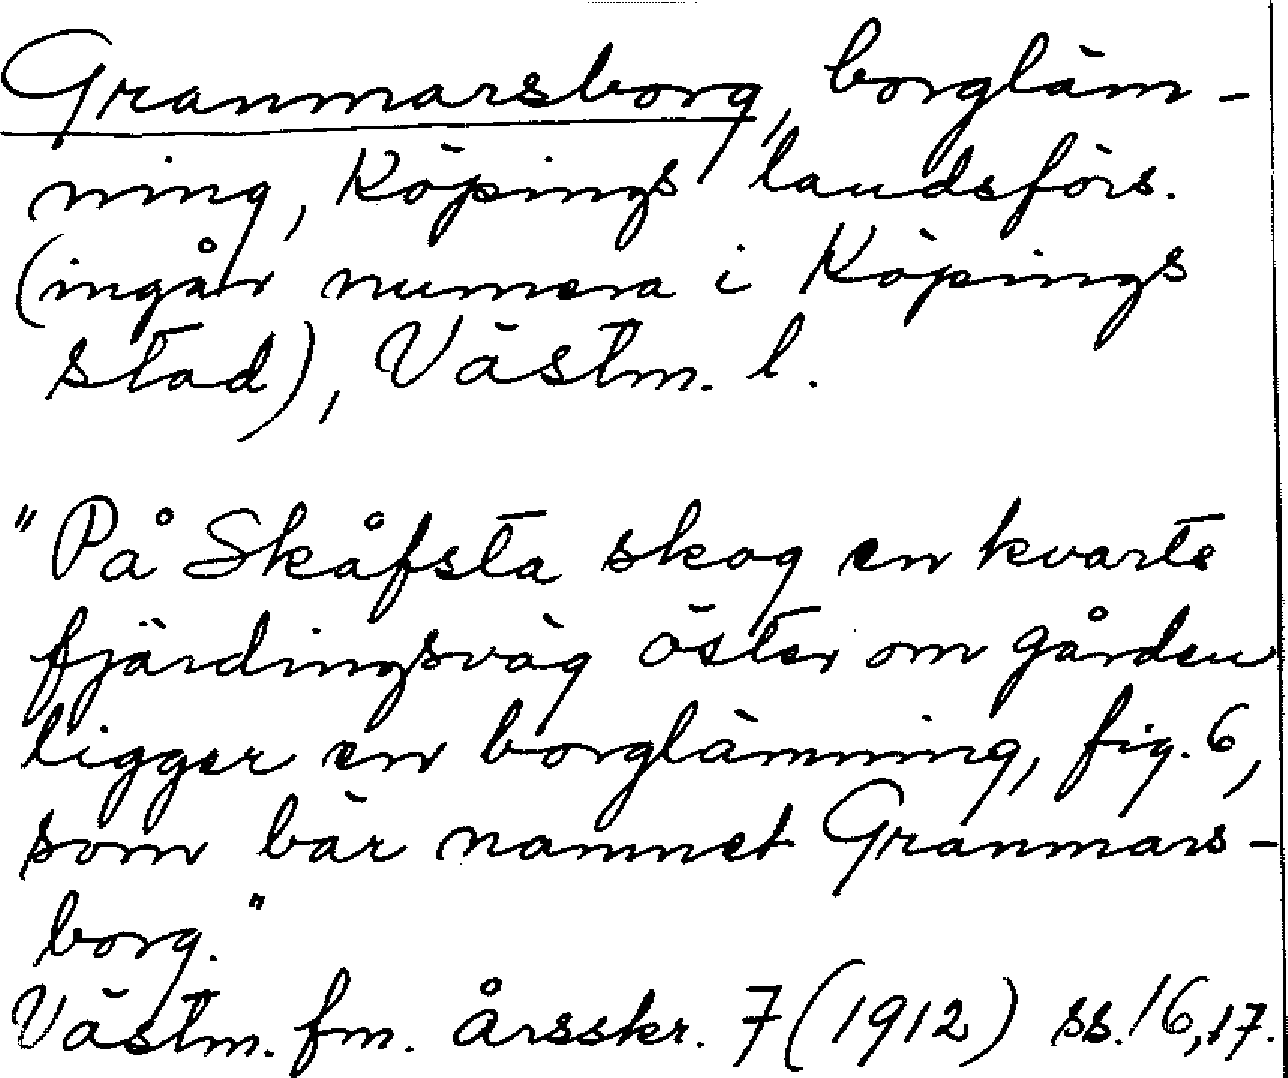 Granmarsborg, borgläm-
ning, Köpings landsförs.
(ingår numera i Köpings
stad), Västm. l.
"På Skåfsta skog en kvarts
fjärdingsväg öster om gården
ligger en borglämning, fig. 6,
som bär namnet Granmars-
borg."
Västm. fm. årsskr. 7 (1912) ss. 16, 17.